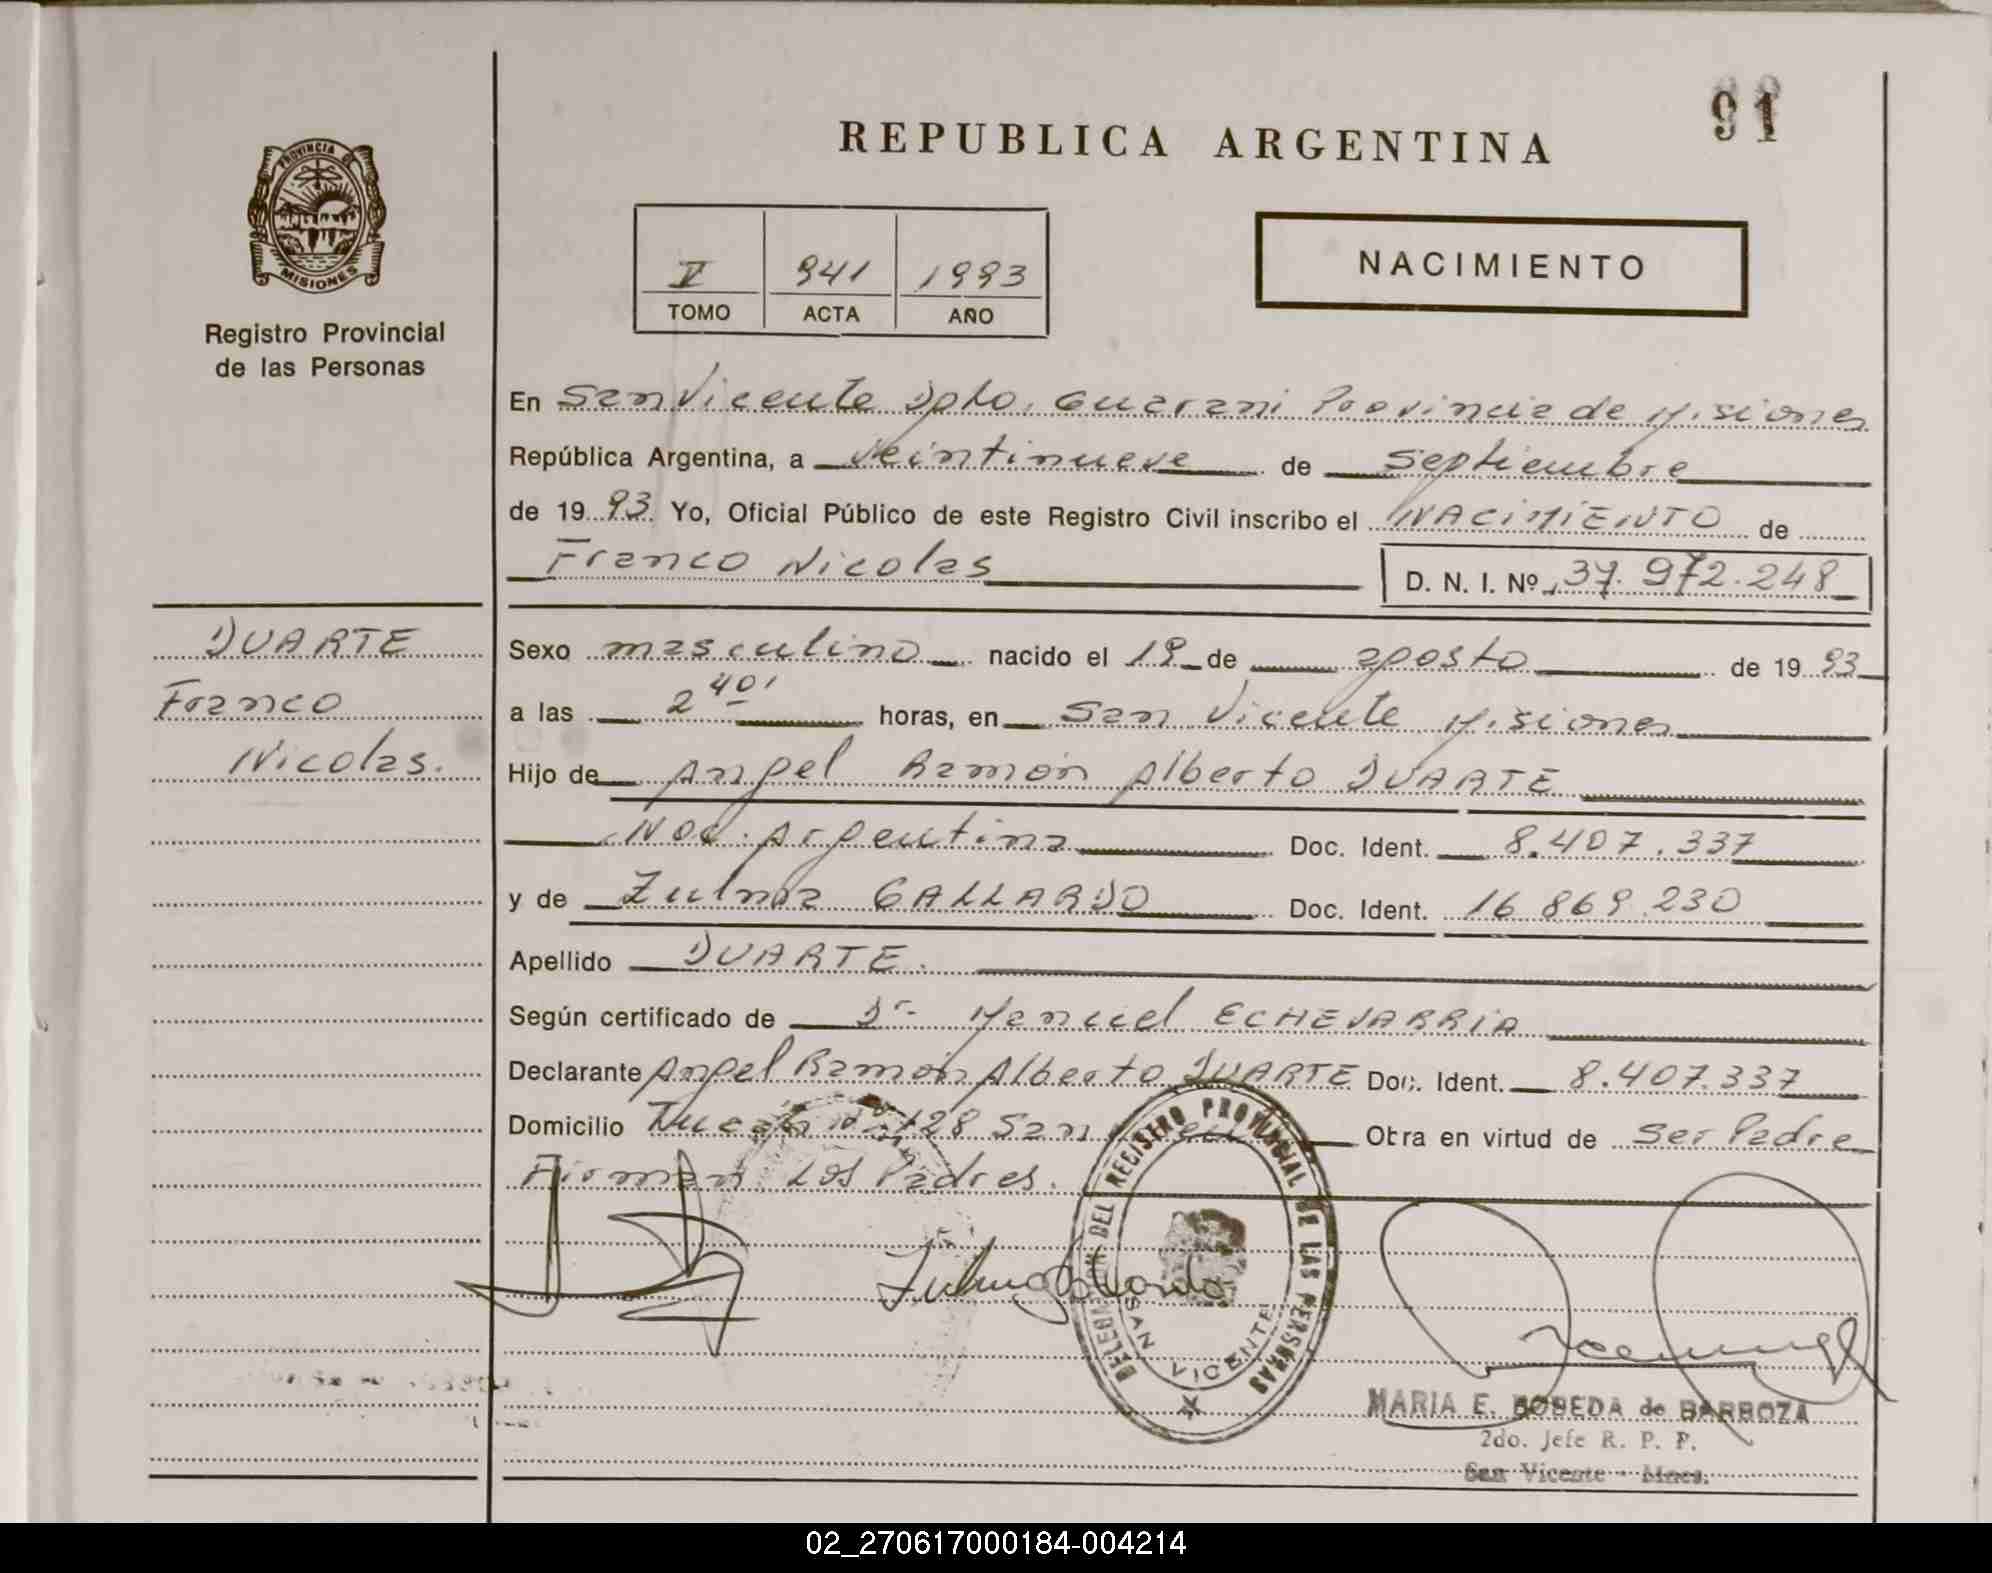 91
REPUBLICA ARGENTINA
PROVINCIA DE
MISIONES
Registro Provincial
de las Personas
V 941 1993
TOMO ACTA AÑO
NACIMIENTO
En San Vicente Dpto. Guarani Provincia de Misiones
República Argentina, a veintinueve de septiembre
de 1993 Yo, Oficial Público de este Registro Civil inscribo el NACIMIENTO de
Franco Nicolas D. N. I. Nº 37.972.248
DUARTE
Franco
Nicolas.
Sexo masculino nacido el 19 de agosto de 1993
a las 2 40' horas, en San Vicente Misiones
Hijo de Angel Ramón Alberto DUARTE
Nac. Argentina Doc. Ident. 8.407.337
y de Zulma GALLARDO Doc. Ident. 16.869.230
Apellido DUARTE.
Según certificado de Dr Manuel ECHEVARRIA
Declarante Angel Ramón Alberto DUARTE Doc. Ident. 8.407.337
Domicilio 128 San Otra en virtud de ser Padre
Firman Los Padres.
Zulma Gallardo
DELEGACION DEL REGISTRO PROVINCIAL DE LAS PERSONAS
SAN VICENTE
MARIA E. BOBEDA de BARBOZA
2do. Jefe R. P. P.
San Vicente - Mnes.
02_270617000184-004214